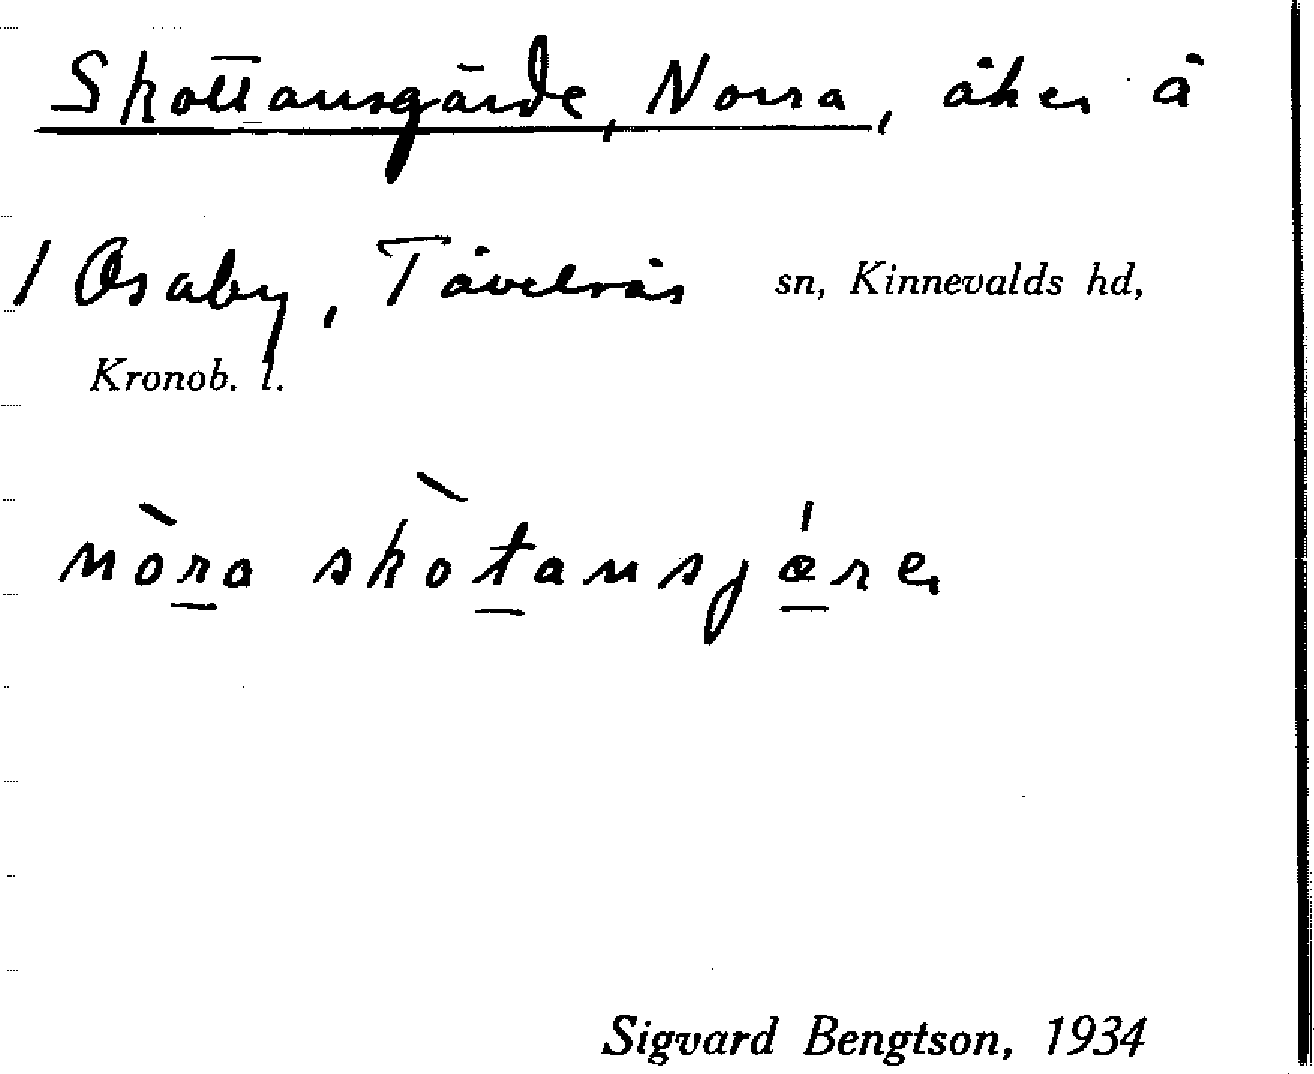 Skottansgärde, Norra, åker å
1 Osaby, Tävelsås sn, Kinnevalds hd,
Kronob. l.
nòra skòtansjǽre
Sigvard Bengtson, 1934